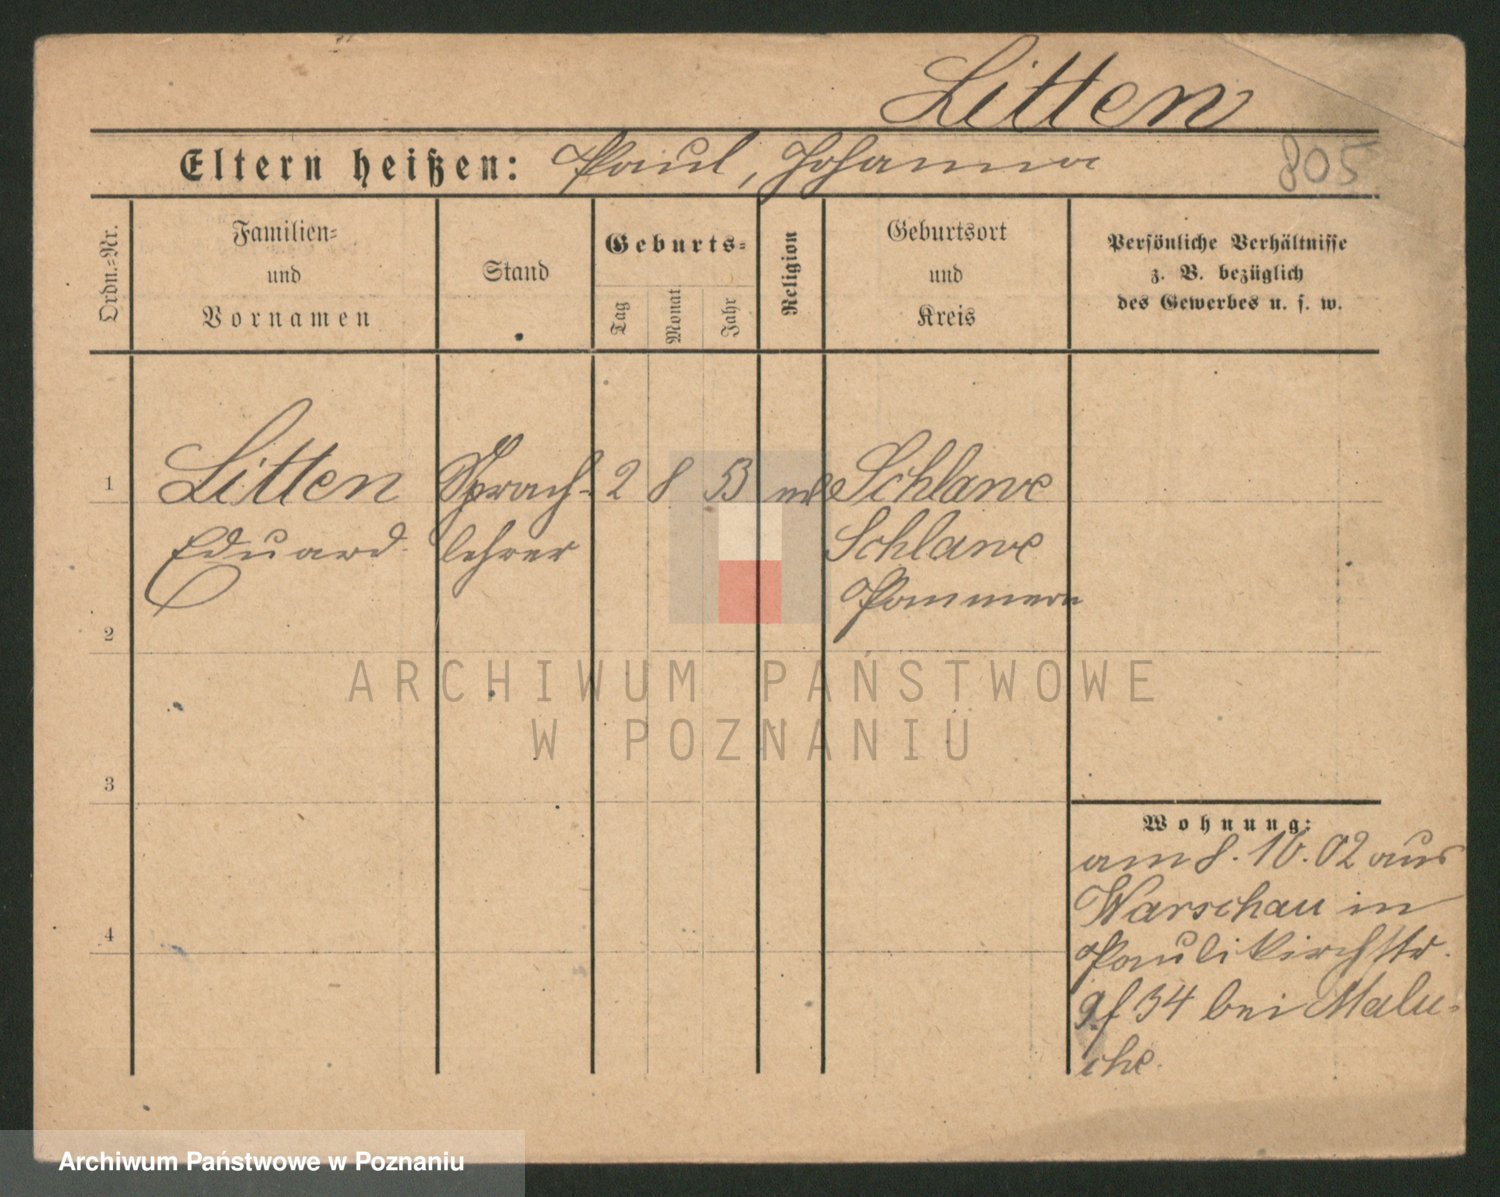 Litten
Eltern heißen: Paul, Johanna 805
Ordn.-Nr.
Familien-
und
Vornamen
Stand
Geburts-
Tag
Monat
Jahr
Religion
Geburtsort
und
Kreis
Persönliche Verhältnisse
z. B. bezüglich
des Gewerbes u. s. w.
1 Litten Sprach- 2 8 53 Schlawe
Eduard lehrer Schlawe
Pommern
2
3
4
Wohnung:
am 8.10.02 aus
Warschau in
Paulikirchstr.
34 bei Malu-
che.
ARCHIWUM PAŃSTWOWE
W POZNANIU
Archiwum Państwowe w Poznaniu